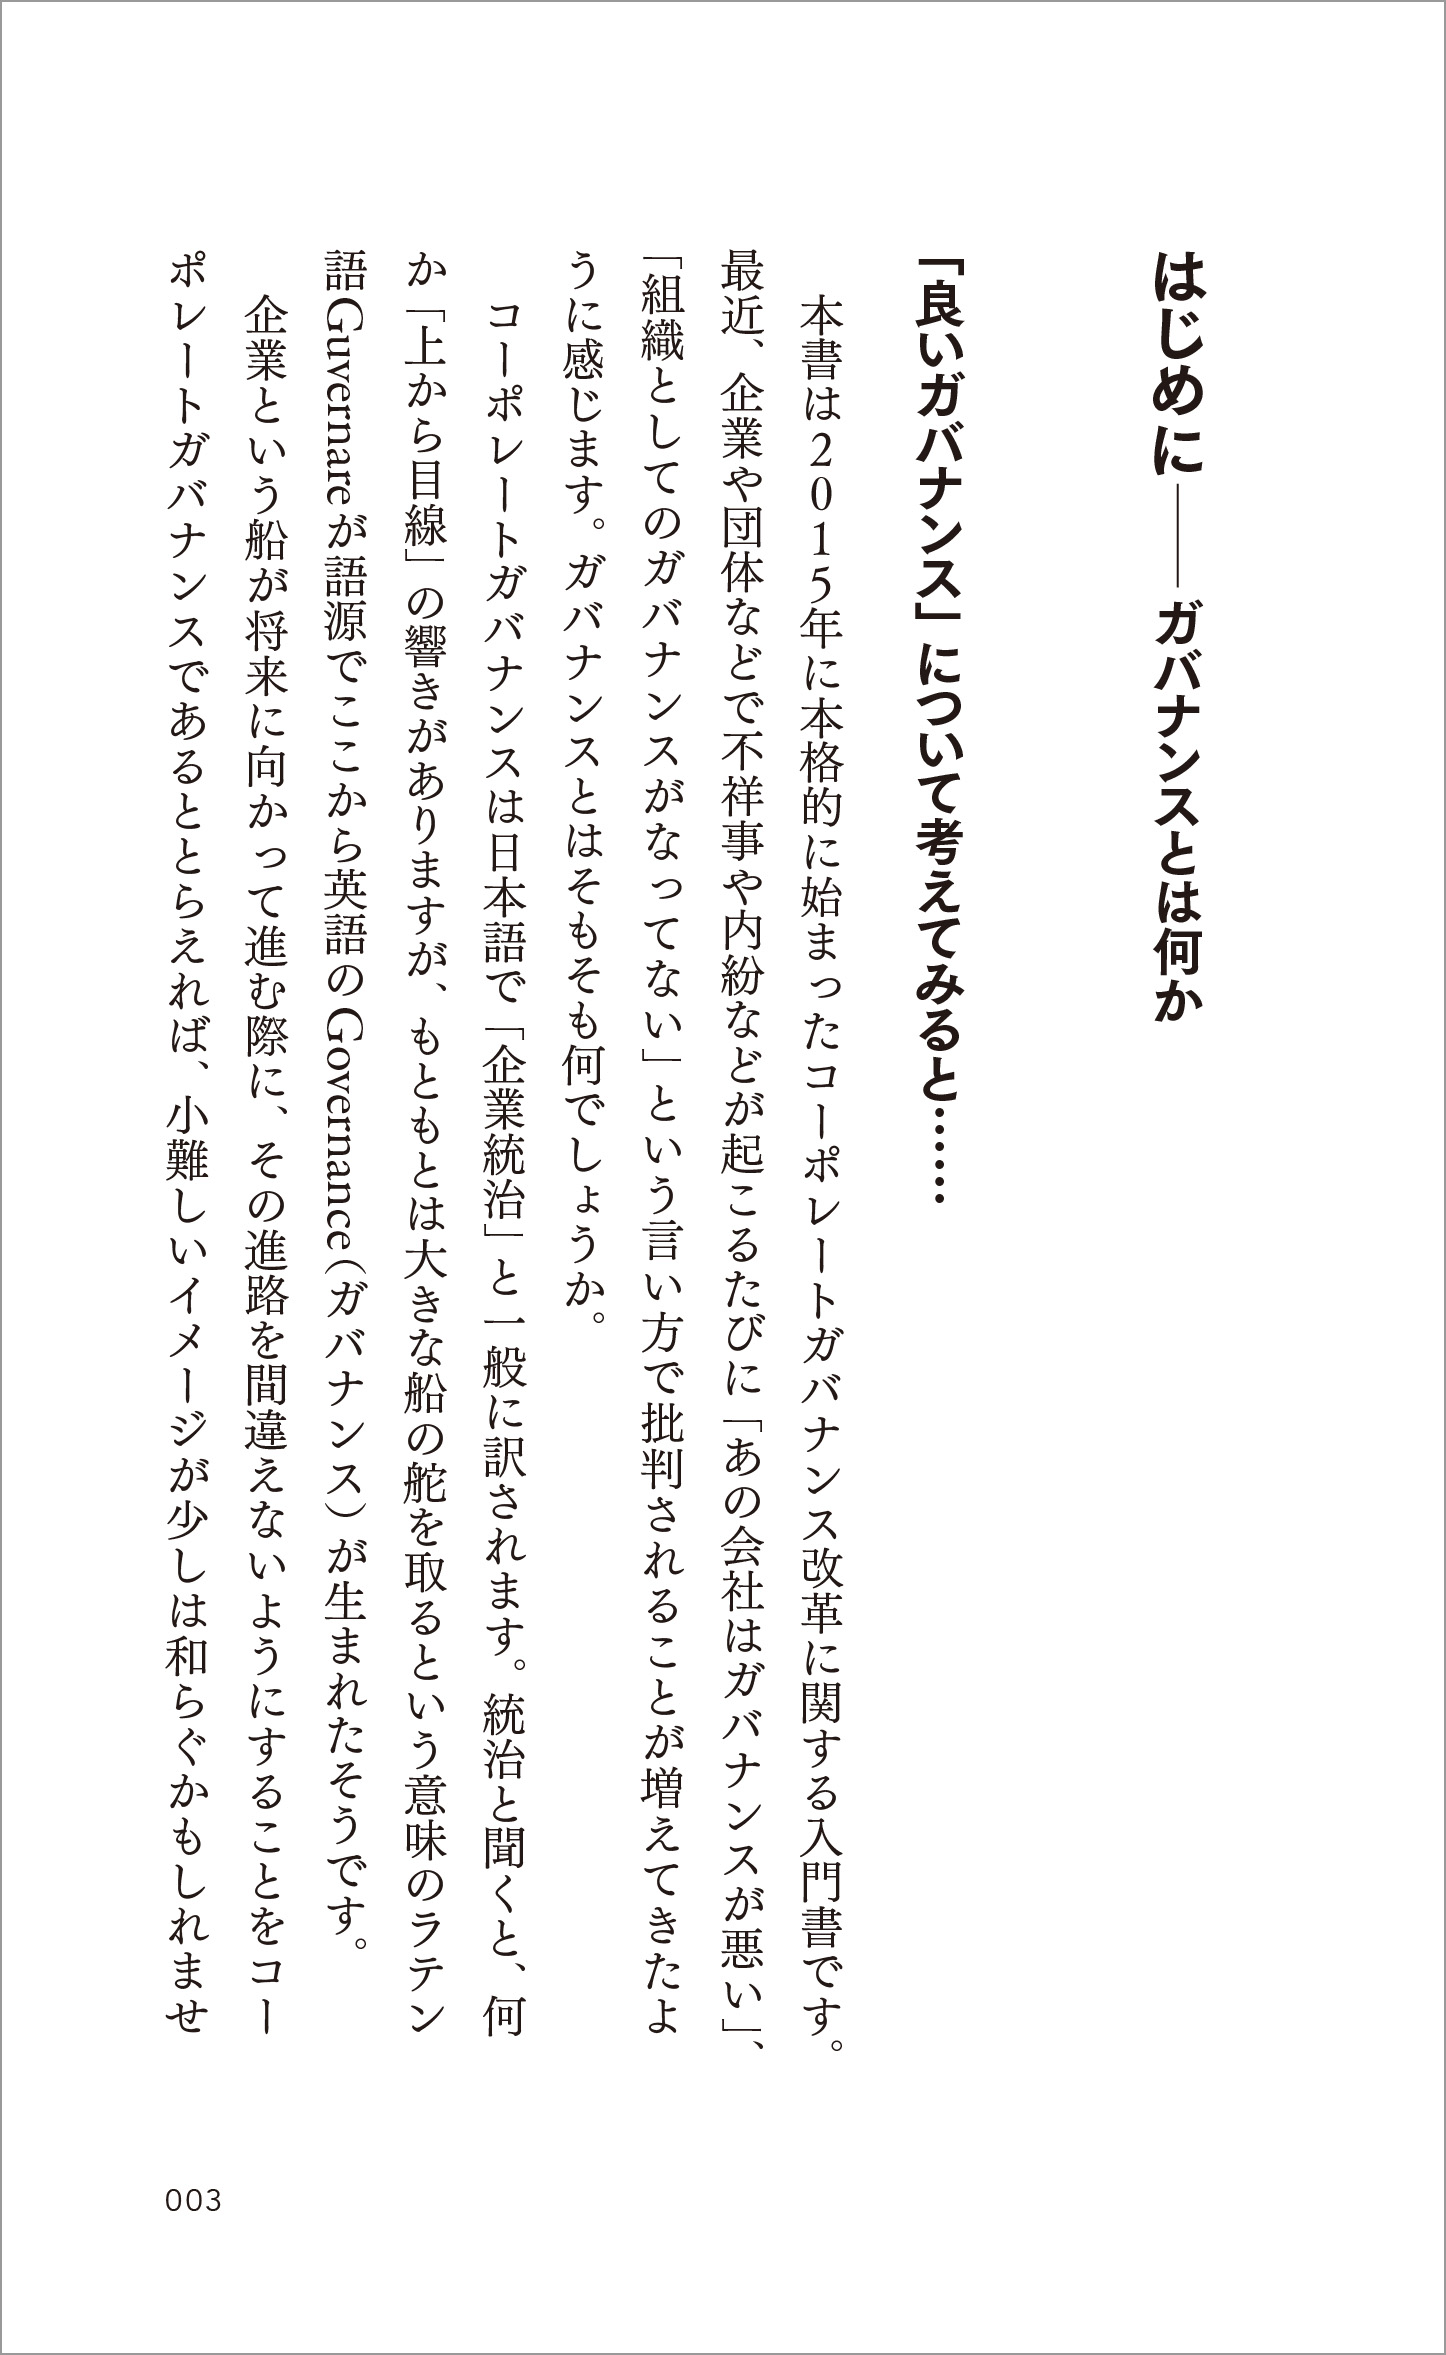 はじめに――ガバナンスとは何か
「良いガバナンス」について考えてみると……
本書は2015年に本格的に始まったコーポレートガバナンス改革に関する入門書です。
最近、企業や団体などで不祥事や内紛などが起こるたびに「あの会社はガバナンスが悪い」、
「組織としてのガバナンスがなってない」という言い方で批判されることが増えてきたよ
うに感じます。ガバナンスとはそもそも何でしょうか。
コーポレートガバナンスは日本語で「企業統治」と一般に訳されます。統治と聞くと、何
か「上から目線」の響きがありますが、もともとは大きな船の舵を取るという意味のラテン
語Guvernareが語源でここから英語のGovernance（ガバナンス）が生まれたそうです。
企業という船が将来に向かって進む際に、その進路を間違えないようにすることをコー
ポレートガバナンスであるととらえれば、小難しいイメージが少しは和らぐかもしれませ
003